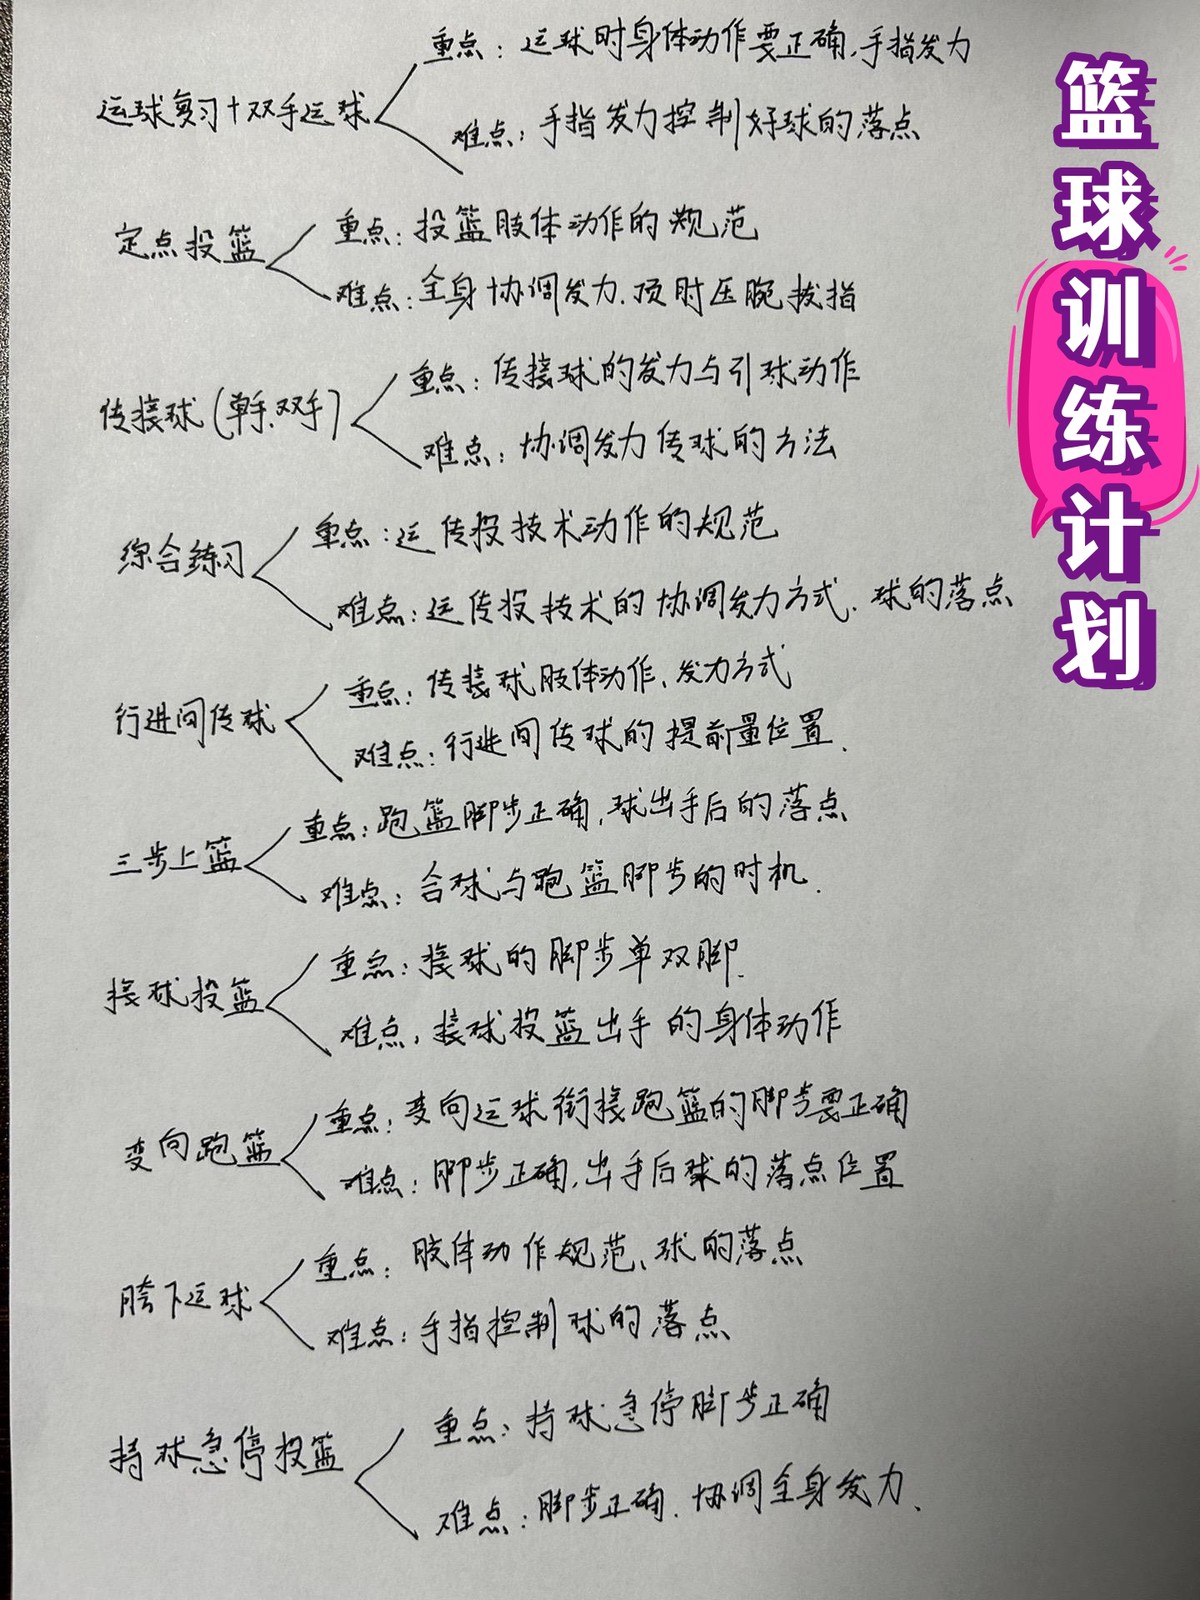 篮球训练计划
重点：运球时身体动作要正确，手指发力
运球复习+双手运球
难点：手指发力控制好球的落点
重点：投篮肢体动作的规范
定点投篮
难点：全身协调发力、顶肘压腕拨指
重点：传接球的发力与引球动作
传接球(单手、双手)
难点：协调发力传球的方法
重点：运传投技术动作的规范
综合练习
难点：运传投技术的协调发力方式、球的落点
重点：传接球肢体动作、发力方式
行进间传球
难点：行进间传球的提前量位置、
重点：跑篮脚步正确，球出手后的落点
三步上篮
难点：合球与跑篮脚步的时机、
重点：接球的脚步单双脚、
接球投篮
难点，接球投篮出手的身体动作
重点：变向运球衔接跑篮的脚步要正确
变向跑篮
难点：脚步正确，出手后球的落点位置
重点：肢体动作规范、球的落点
胯下运球
难点：手指控制球的落点
重点：持球急停脚步正确
持球急停投篮
难点：脚步正确、协调全身发力、